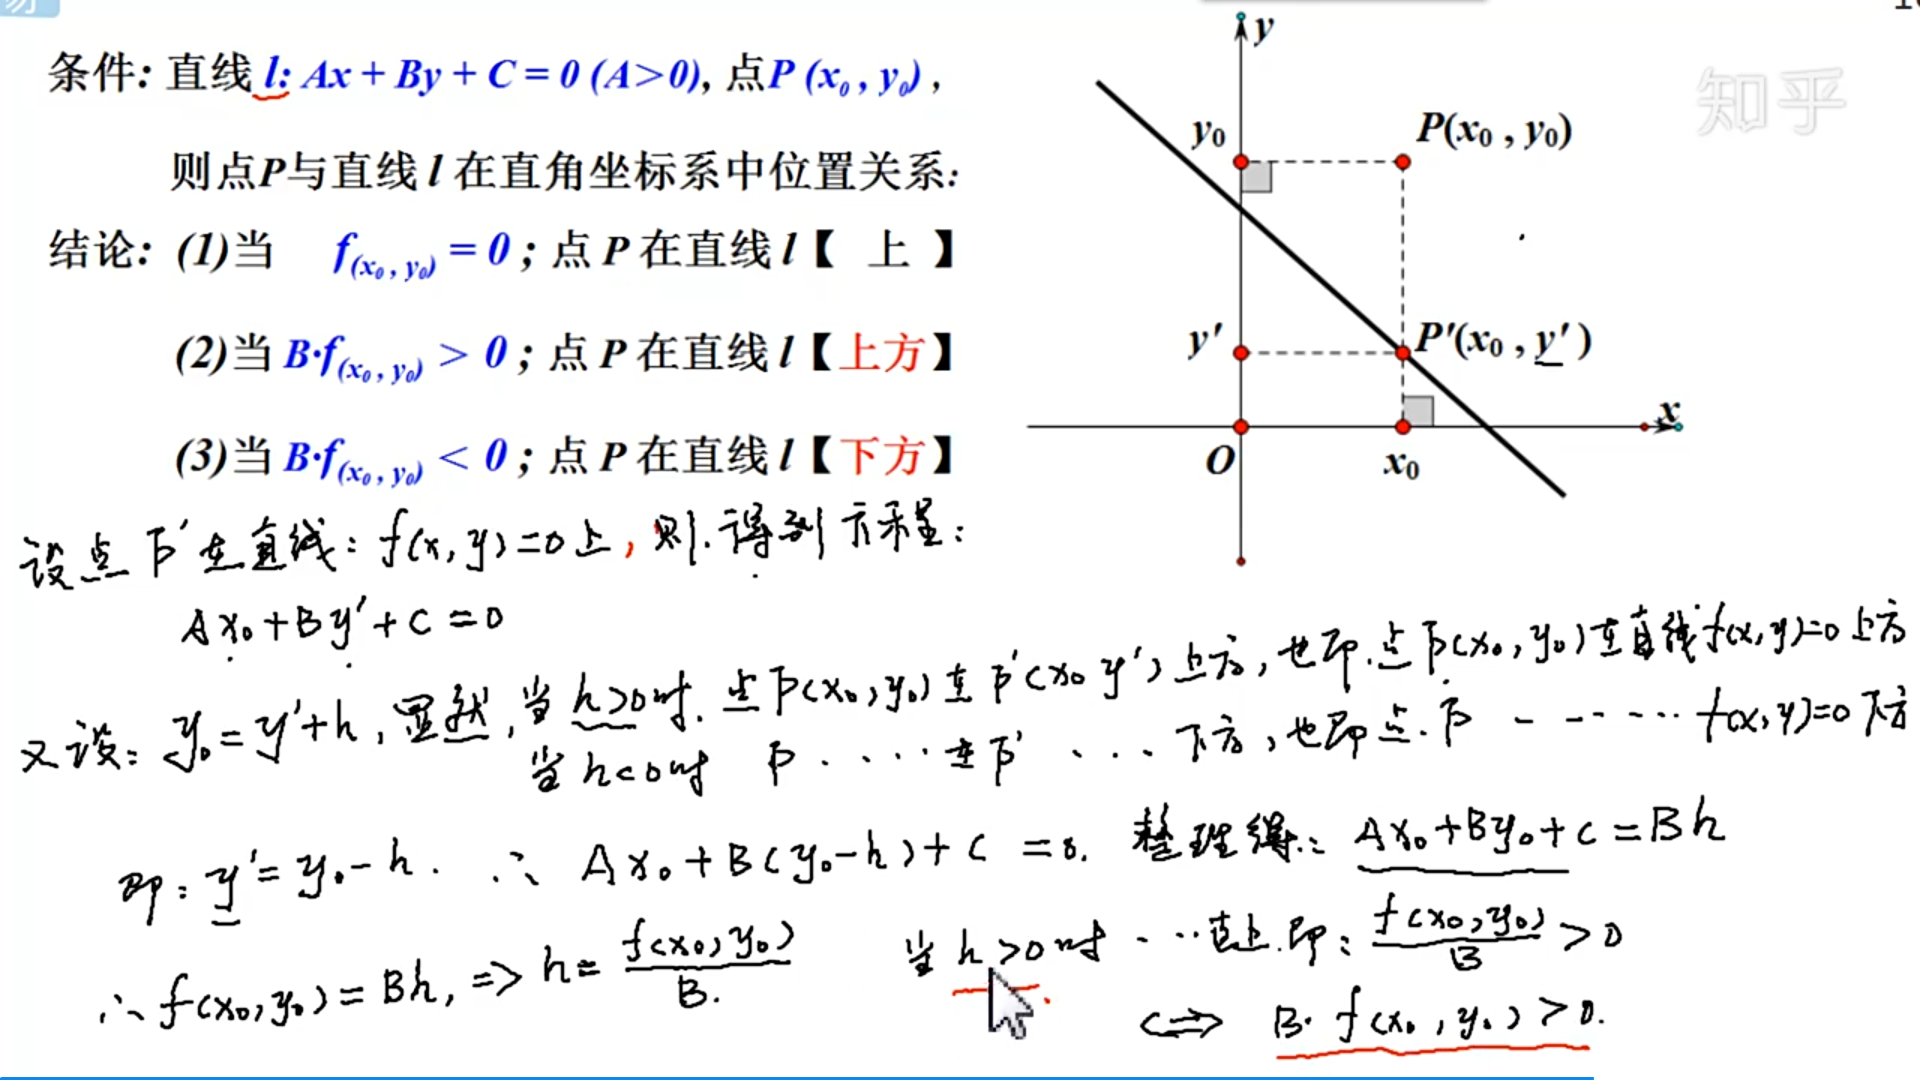 易
条件: 直线 l: Ax + By + C = 0 (A>0), 点P (x₀, y₀),
则点P与直线 l 在直角坐标系中位置关系:
结论: (1)当 f(x₀, y₀) = 0 ; 点 P 在直线 l【 上 】
(2)当 B·f(x₀, y₀) > 0 ; 点 P 在直线 l【上方】
(3)当 B·f(x₀, y₀) < 0 ; 点 P 在直线 l【下方】
知乎
y
y₀
P(x₀ , y₀)
y′
P′(x₀ , y′)
x
O
x₀
设点 P′在直线: f(x, y)=0上, 则. 得到方程:
Ax₀+By′+C=0
又设: y₀=y′+h, 显然, 当 h>0时. 点P(x₀, y₀)在P′(x₀ y′)上方, 也即.点P(x₀, y₀)在直线f(x, y)=0上方
当 h<0时 P ····在P′ ····下方, 也即点.P - - ···· f(x, y)=0下方
即: y′=y₀-h. ∴ Ax₀+B(y₀-h)+C =0. 整理得: Ax₀+By₀+C=Bh
∴ f(x₀, y₀)=Bh, => h= f(x₀, y₀)/B. 当 h>0时 ···直上.即: f(x₀, y₀)/B >0
<=> B· f(x₀, y₀)>0.